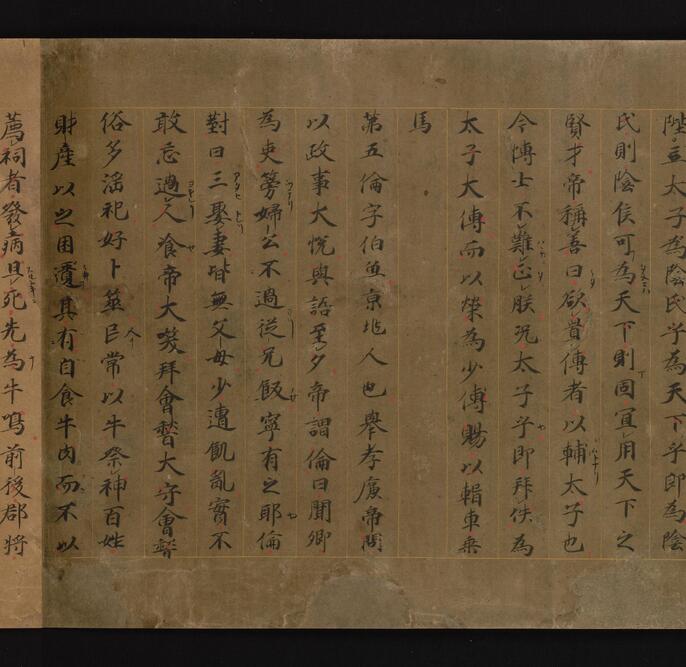 陛立太子為陰氏乎為天下乎即為陰
氏則陰侯可為天下則固宜用天下之
賢才帝稱善曰欲置傅者以輔太子也
今博士不難正朕況太子乎即拜佚為
太子大傅而以榮為少傅賜以輜車乗
馬
第五倫字伯魚京兆人也舉孝廉帝問
以政事大悦與語至夕帝謂倫曰聞卿
為吏篣婦公不過從兄飯寧有之耶倫
對曰三娶妻皆無父母少遭飢亂實不
敢忘過人飡帝大咲拜會稽大守會稽
俗多淫祀好卜筮巳常以牛祭神百姓
財産以之困遺其有自食牛肉而不以
薦祠者發病且死先為牛鳴前後郡将